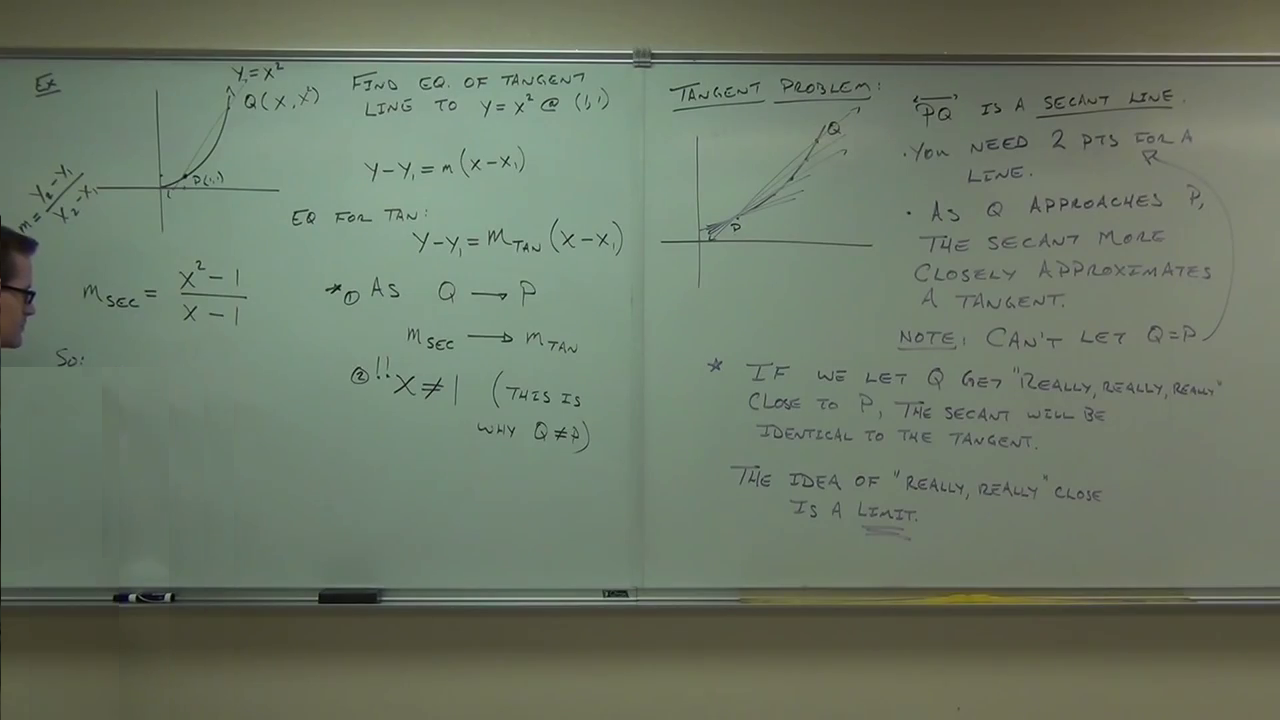 Ex
Y₁ = X²
Q(X, X²)
P(1,1)
m = Y₂ - Y₁ / X₂ - X₁
FIND EQ. OF TANGENT
LINE TO Y = X² @ (1,1)
Y - Y₁ = m(X - X₁)
EQ FOR TAN:
Y - Y₁ = m_TAN (X - X₁)
m_SEC = X² - 1 / X - 1
* ① AS Q → P
m_SEC → m_TAN
② !! X ≠ 1 (THIS IS
WHY Q ≠ P)
SO:
TANGENT PROBLEM:
Q
P
PQ IS A SECANT LINE.
· YOU NEED 2 PTS FOR A
LINE.
· AS Q APPROACHES P,
THE SECANT MORE
CLOSELY APPROXIMATES
A TANGENT.
NOTE: CAN'T LET Q=P
* IF WE LET Q GET "REALLY, REALLY, REALLY"
CLOSE TO P, THE SECANT WILL BE
IDENTICAL TO THE TANGENT.
THE IDEA OF "REALLY, REALLY" CLOSE
IS A LIMIT.